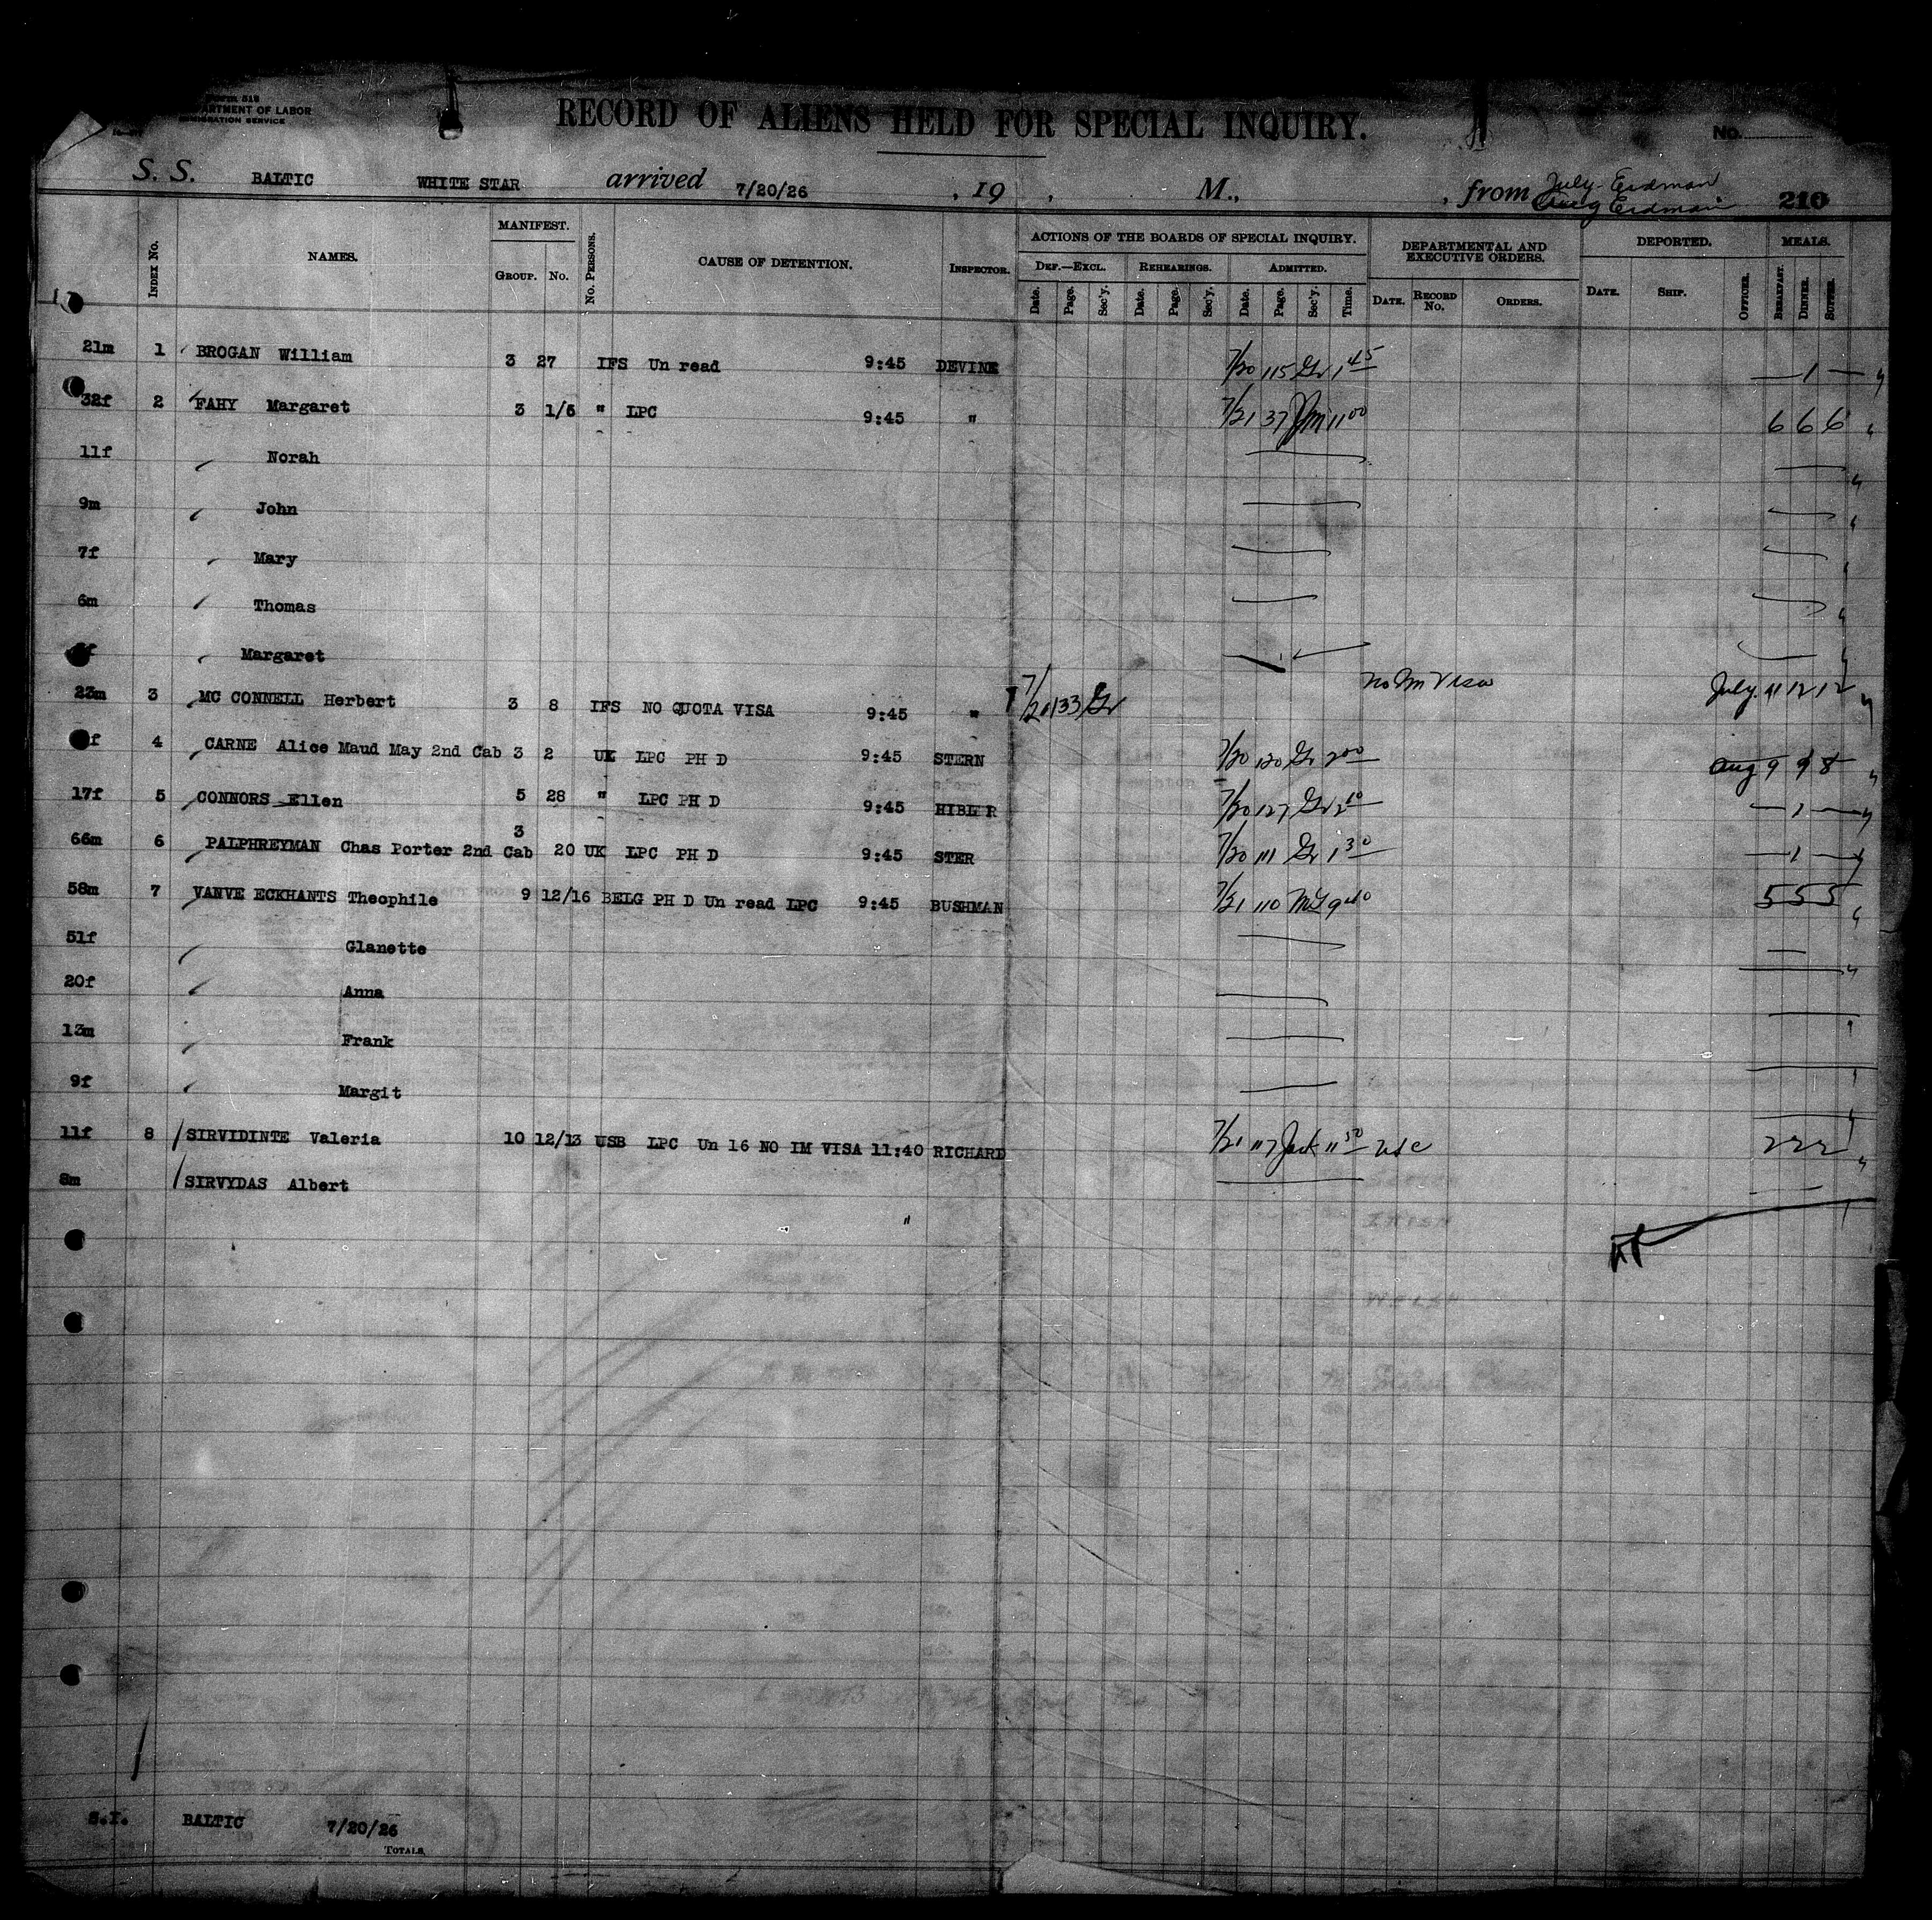 Form 518
DEPARTMENT OF LABOR
IMMIGRATION SERVICE
RECORD OF ALIENS HELD FOR SPECIAL INQUIRY.
No.
S. S. BALTIC WHITE STAR arrived 7/20/26 , 19 , M., , from July-Erdman 210
Erdman
INDEX No. NAMES. MANIFEST. GROUP. No. No. PERSONS. CAUSE OF DETENTION. INSPECTOR. ACTIONS OF THE BOARDS OF SPECIAL INQUIRY. DEPARTMENTAL AND EXECUTIVE ORDERS. DEPORTED. MEALS.
DEF.—EXCL. REHEARINGS. ADMITTED.
Date. Page. Sec'y. Date. Page. Sec'y. Date. Page. Sec'y. Time. DATE. RECORD No. ORDERS. DATE. SHIP. OFFICER. BREAKFAST. DINNER. SUPPER.
21m 1 BROGAN William 3 27 IFS Un read 9:45 DEVINE 7/20 115 Gr 1 45 — 1 —
32f 2 FAHY Margaret 3 1/6 " LPC 9:45 " 7/21 37 11 00 6 6 6
11f Norah
9m John
7f Mary
6m Thomas
f Margaret
23m 3 MC CONNELL Herbert 3 8 IFS NO QUOTA VISA 9:45 " 7/20 133 Gr No Im Visa July 11 12 12
f 4 CARNE Alice Maud May 2nd Cab 3 2 UK LPC PH D 9:45 STERN 7/20 120 Gr 2 00 Aug 9 9 8
17f 5 CONNORS Ellen 5 28 " LPC PH D 9:45 HIBLER 7/20 127 Gr 2 10 — 1 —
66m 6 PALPHREYMAN Chas Porter 2nd Cab 3 20 UK LPC PH D 9:45 STER 7/20 111 Gr 1 30 — 1 —
58m 7 VANVE ECKHANTS Theophile 9 12/16 BELG PH D Un read LPC 9:45 BUSHMAN 7/21 110 McG 9 40 5 5 5
51f Glanette
20f Anna
13m Frank
9f Margit
11f 8 SIRVIDINTE Valeria 10 12/13 USB LPC Un 16 NO IM VISA 11:40 RICHARD 7/21 117 Jack 11 50 USC 2 2 2
8m SIRVYDAS Albert
"
S.I. BALTIC 7/20/26
TOTALS